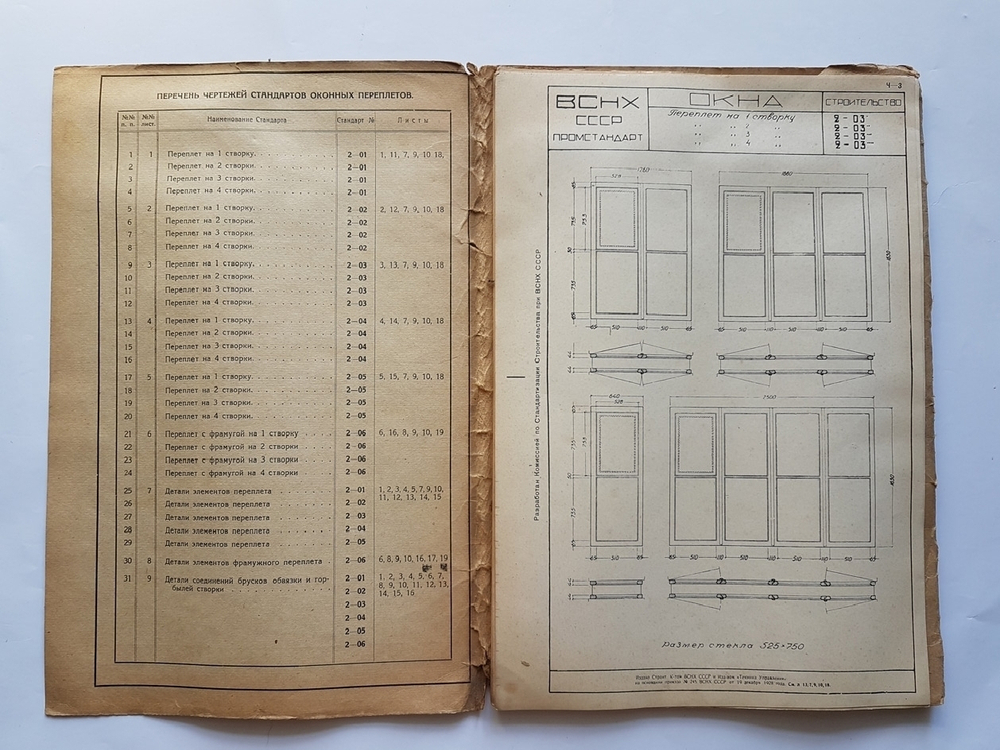 ПЕРЕЧЕНЬ ЧЕРТЕЖЕЙ СТАНДАРТОВ ОКОННЫХ ПЕРЕПЛЕТОВ.
№№ п. п. №№ лист. Наименование Стандарта Стандарт № Листы
1 1 Переплет на 1 створку. 2—01 1, 11, 7, 9, 10 18,
2 Переплет на 2 створки. 2—01
3 Переплет на 3 створки. 2—01
4 Переплет на 4 створки. 2—01
5 2 Переплет на 1 створку. 2—02 2, 12, 7, 9, 10, 18
6 Переплет на 2 створки. 2—02
7 Переплет на 3 створки. 2—02
8 Переплет на 4 створки. 2—02
9 3 Переплет на 1 створку. 2—03 3, 13, 7, 9, 10, 18
10 Переплет на 2 створки. 2—03
11 Переплет на 3 створки. 2—03
12 Переплет на 4 створки. 2—03
13 4 Переплет на 1 створку. 2—04 4, 14, 7, 9, 10, 18
14 Переплет на 2 створки. 2—04
15 Переплет на 3 створки. 2—04
16 Переплет на 4 створки. 2—04
17 5 Переплет на 1 створку. 2—05 5, 15, 7, 9, 10, 18
18 Переплет на 2 створки. 2—05
19 Переплет на 3 створки. 2—05
20 Переплет на 4 створки. 2—05
21 6 Переплет с фрамугой на 1 створку 2—06 6, 16, 8, 9, 10, 19
22 Переплет с фрамугой на 2 створки 2—06
23 Переплет с фрамугой на 3 створки 2—06
24 Переплет с фрамугой на 4 створки 2—06
25 7 Детали элементов переплета 2—01 1, 2, 3, 4, 5, 7, 9, 10,
11, 12, 13, 14, 15
26 Детали элементов переплета 2—02
27 Детали элементов переплета 2—03
28 Детали элементов переплета 2—04
29 Детали элементов переплета 2—05
30 8 Детали элементов фрамужного переплета 2—06 6, 8, 9, 10, 16, 17, 19
31 9 Детали соединений брусков обвязки и гор- 2—01 1, 2, 3, 4, 5, 6, 7,
былей створки 2—02 8, 9, 10, 11, 12, 13,
14, 15, 16
2—03
2—04
2—05
2—06
4—3
ВСНХ
СССР
ПРОМСТАНДАРТ
ОКНА
Переплет на 1 створку
" " 2 "
" " 3 "
" " 4 "
СТРОИТЕЛЬСТВО
2-03
2-03
2-03
2-03
Разработан Комиссией по Стандартизации Строительства при ВСНХ СССР
528
65 510 110 510 65
65 510 110 510 110 510 65
640
528
2500
65 510 65
65 510 110 510 110 510 110 510 65
размер стекла 525×750